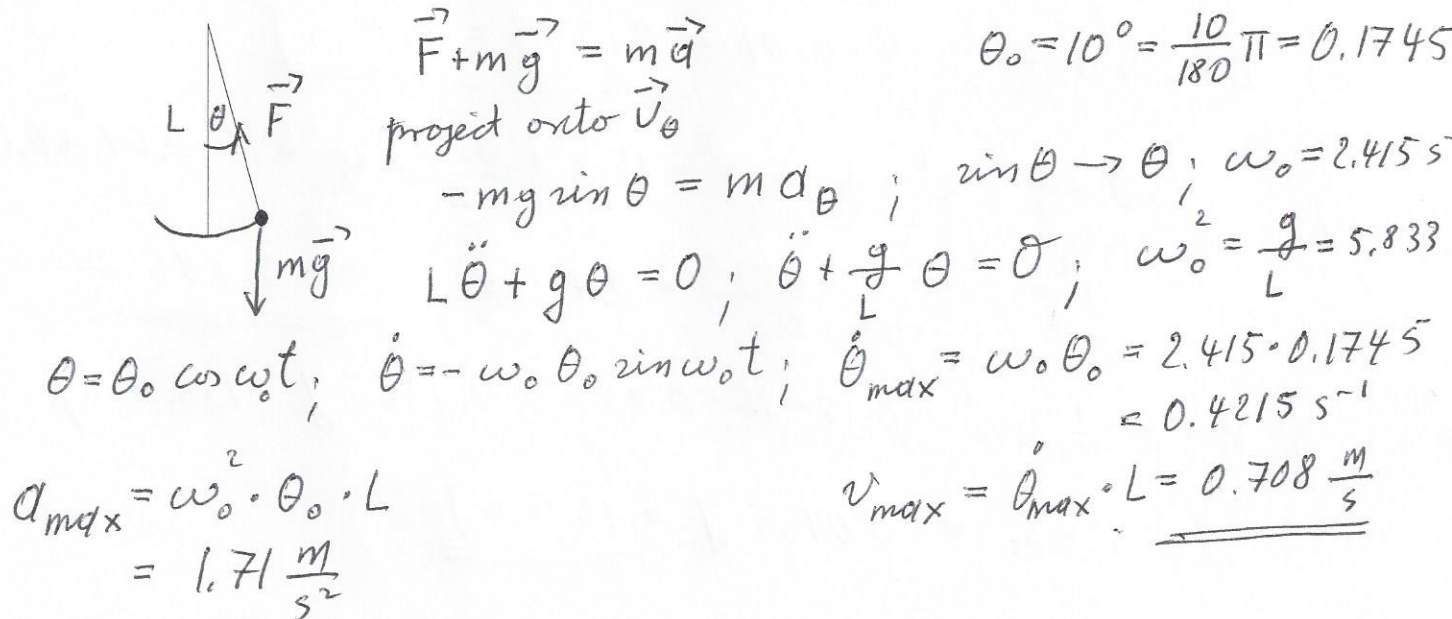 F⃗ + mg⃗ = ma⃗
θ₀ = 10° = 10/180 π = 0.1745
L θ F⃗
project onto U⃗_θ
-mg sin θ = m a_θ ; sin θ → θ ; ω₀ = 2.415 s⁻
mg⃗
Lθ̈ + gθ = 0 ; θ̈ + g/L θ = 0 ; ω₀² = g/L = 5.833
θ = θ₀ cos ω₀t ; θ̇ = -ω₀ θ₀ sin ω₀t ; θ̇_max = ω₀ θ₀ = 2.415 · 0.1745
= 0.4215 s⁻¹
a_max = ω₀² · θ₀ · L
v_max = θ̇_max · L = 0.708 m/s
= 1.71 m/s²